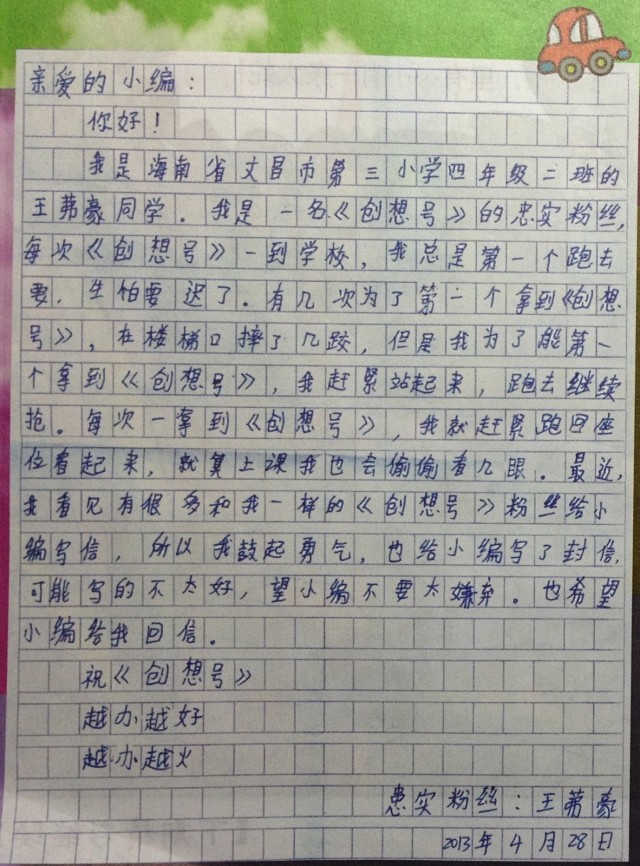 亲爱的小编：
你好！
我是海南省文昌市第三小学四年级二班的
王茀豪同学。我是一名《创想号》的忠实粉丝，
每次《创想号》一到学校，我总是第一个跑去
要，生怕要迟了。有几次为了第一个拿到《创想
号》，在楼梯口摔了几跤，但是我为了能第一
个拿到《创想号》，我赶紧站起来，跑去继续
抢。每次一拿到《创想号》，我就赶紧跑回座
位看起来，就算上课我也会偷偷看几眼。最近，
我看见有很多和我一样的《创想号》粉丝给小
编写信，所以我鼓起勇气，也给小编写了封信，
可能写的不太好，望小编不要太嫌弃。也希望
小编给我回信。
祝《创想号》
越办越好
越办越火
忠实粉丝：王茀豪
2013年4月28日